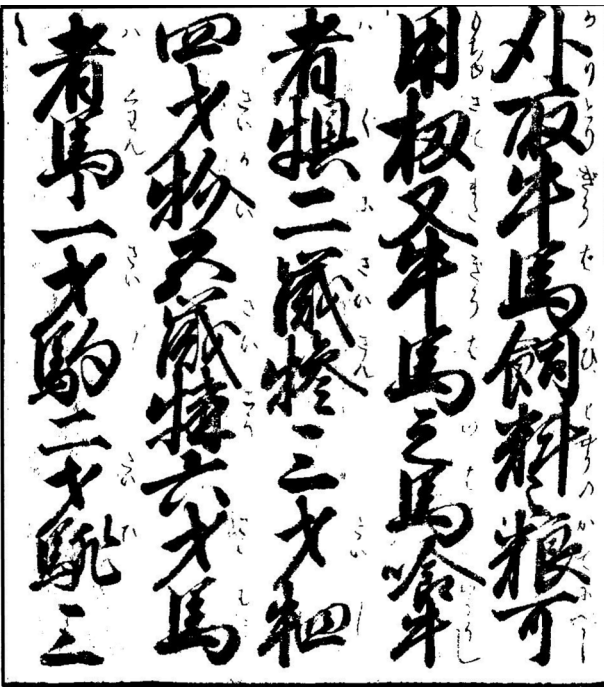 刈取牛馬飼料之粮可
用扨又牛馬之馬喰牛
者犋二歳犙三才牭
四才五歳六才馬
者一才駒二才駣三